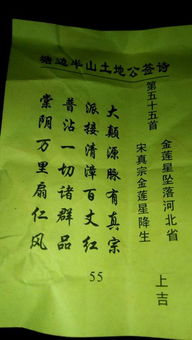 塘边半山土地公签诗
第五十五首
金莲星坠落河北省
宋真宗金莲星降生
上吉
大颠源脉有真宗
派接清漳百丈红
普沾一切诸群品
棠阴万里扇仁风
55